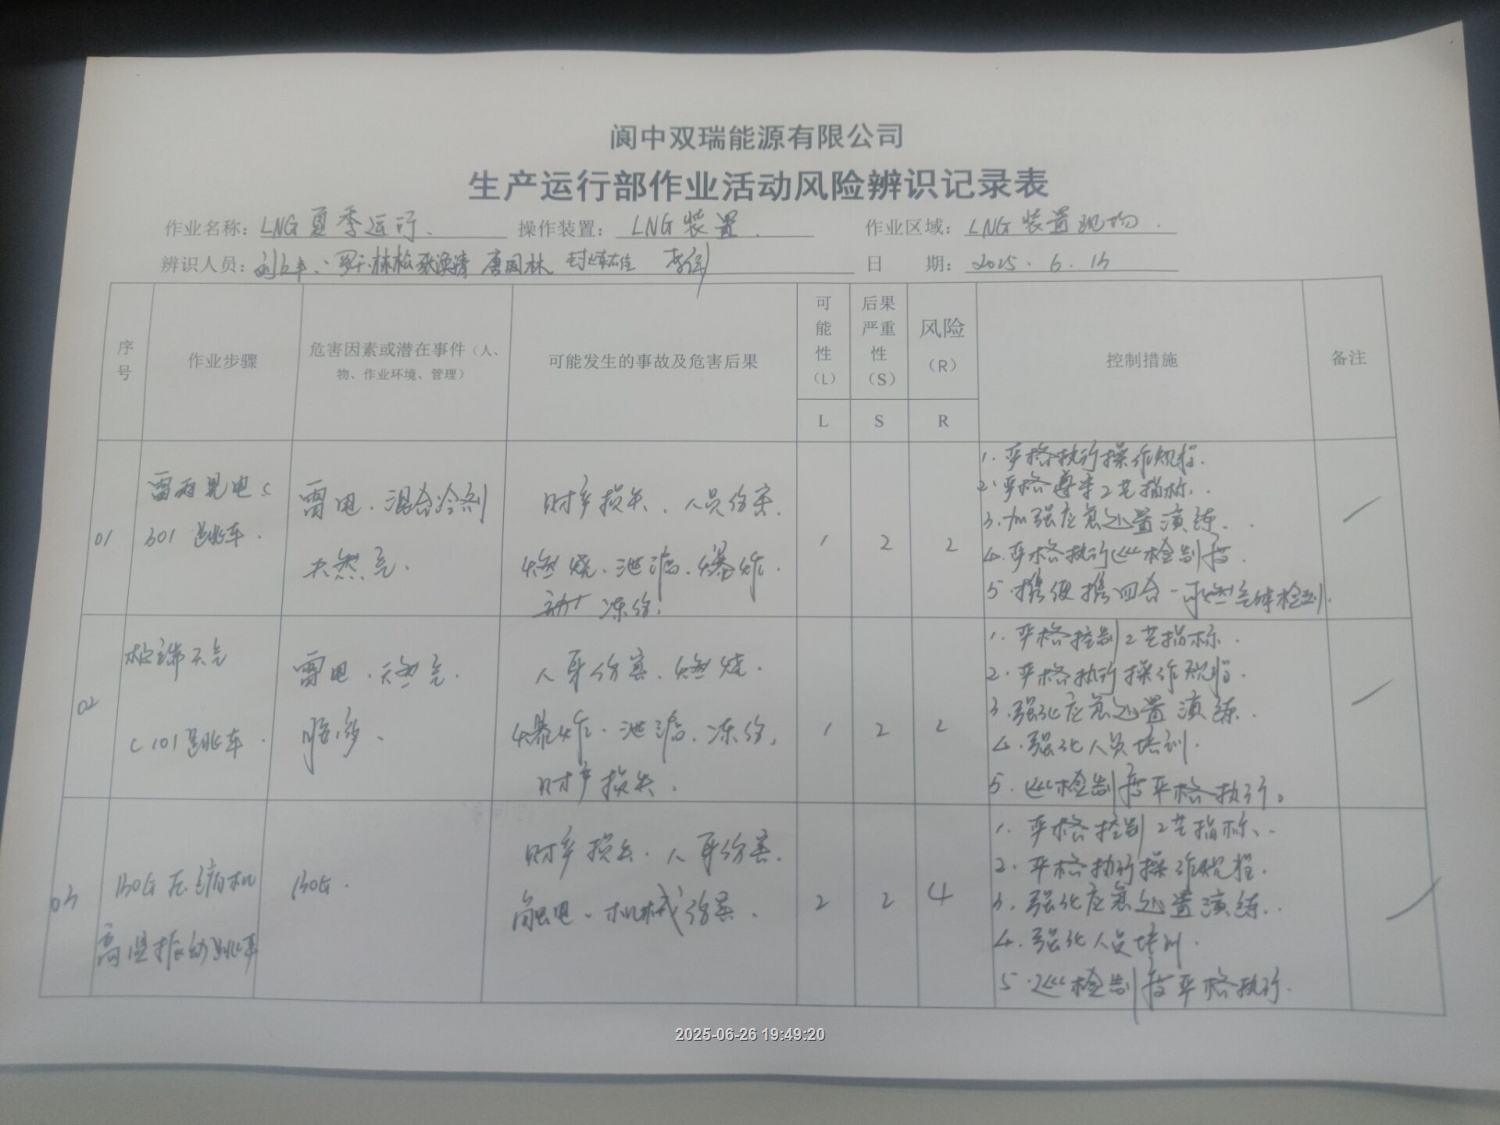 阆中双瑞能源有限公司
生产运行部作业活动风险辨识记录表
作业名称：LNG夏季运行. 操作装置：LNG装置. 作业区域：LNG装置现场.
辨识人员： 唐国林 日 期：2025.6.15
序号 作业步骤 危害因素或潜在事件（人、物、作业环境、管理） 可能发生的事故及危害后果 可能性（L） 后果严重性（S） 风险（R） 控制措施 备注
L S R
01 雷雨晃电C301跳车. 雷电.混合冷剂 天然气. 财产损失.人员伤害. 燃烧.泄漏.爆炸. 冻伤. 1 2 2
1.严格执行操作规程.
2.严格遵守工艺指标.
3.加强应急处置演练.
4.严格执行巡检制度.
5.携便携四合一可燃气体检测.
02 极端天气 C101跳车. 雷电.天燃气. 人身伤害.燃烧. 爆炸.泄漏.冻伤, 财产损失. 1 2 2
1.严格控制工艺指标.
2.严格执行操作规程.
3.强化应急处置演练.
4.强化人员培训.
5.巡检制度严格执行。
03 BOG压缩机 高温振动跳车 BOG. 财产损失.人身伤害. 触电.机械伤害. 2 2 4
1.严格控制工艺指标.
2.严格执行操作规程.
3.强化应急处置演练.
4.强化人员培训.
5.巡检制度严格执行.
2025-06-26 19:49:20